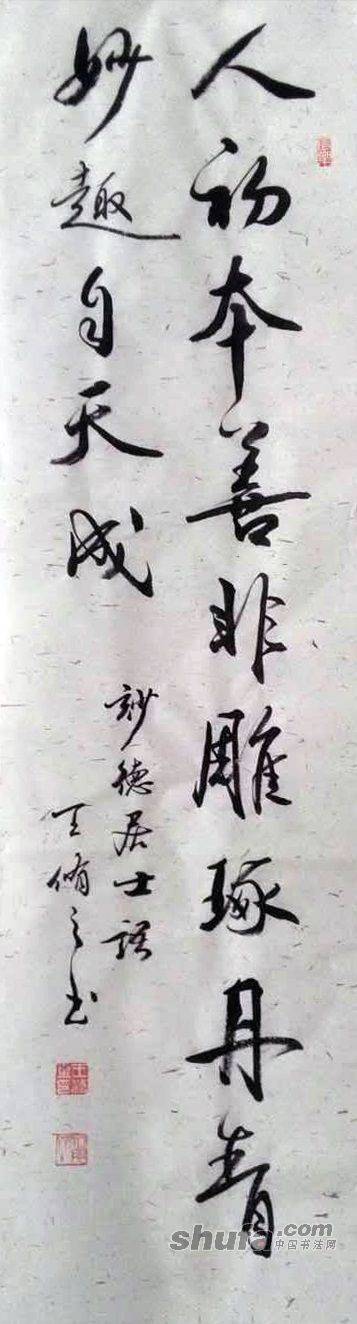 人初本善非雕琢丹青
妙趣自天成
妙德居士語
王脩之书
shufa.com
中国书法网